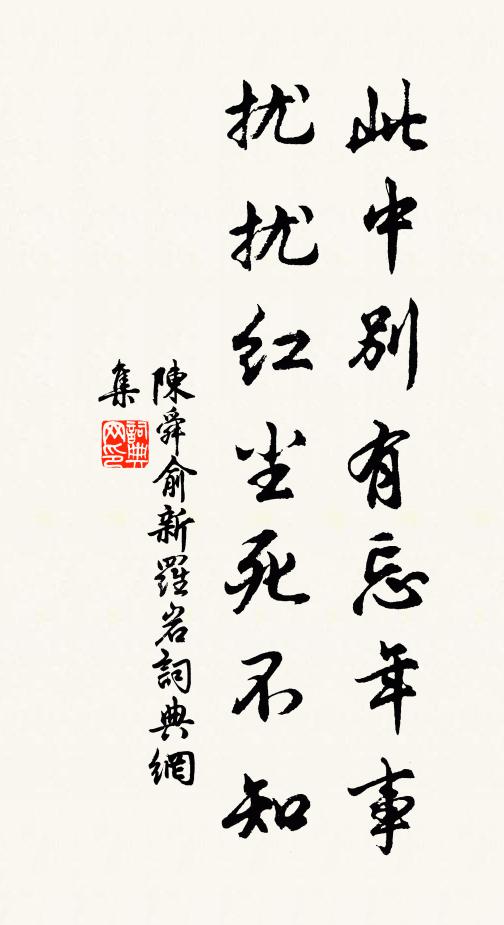 此中別有忘年事
扰扰红尘死不知
陳舜俞新羅岩詞典網
集
詞典网印